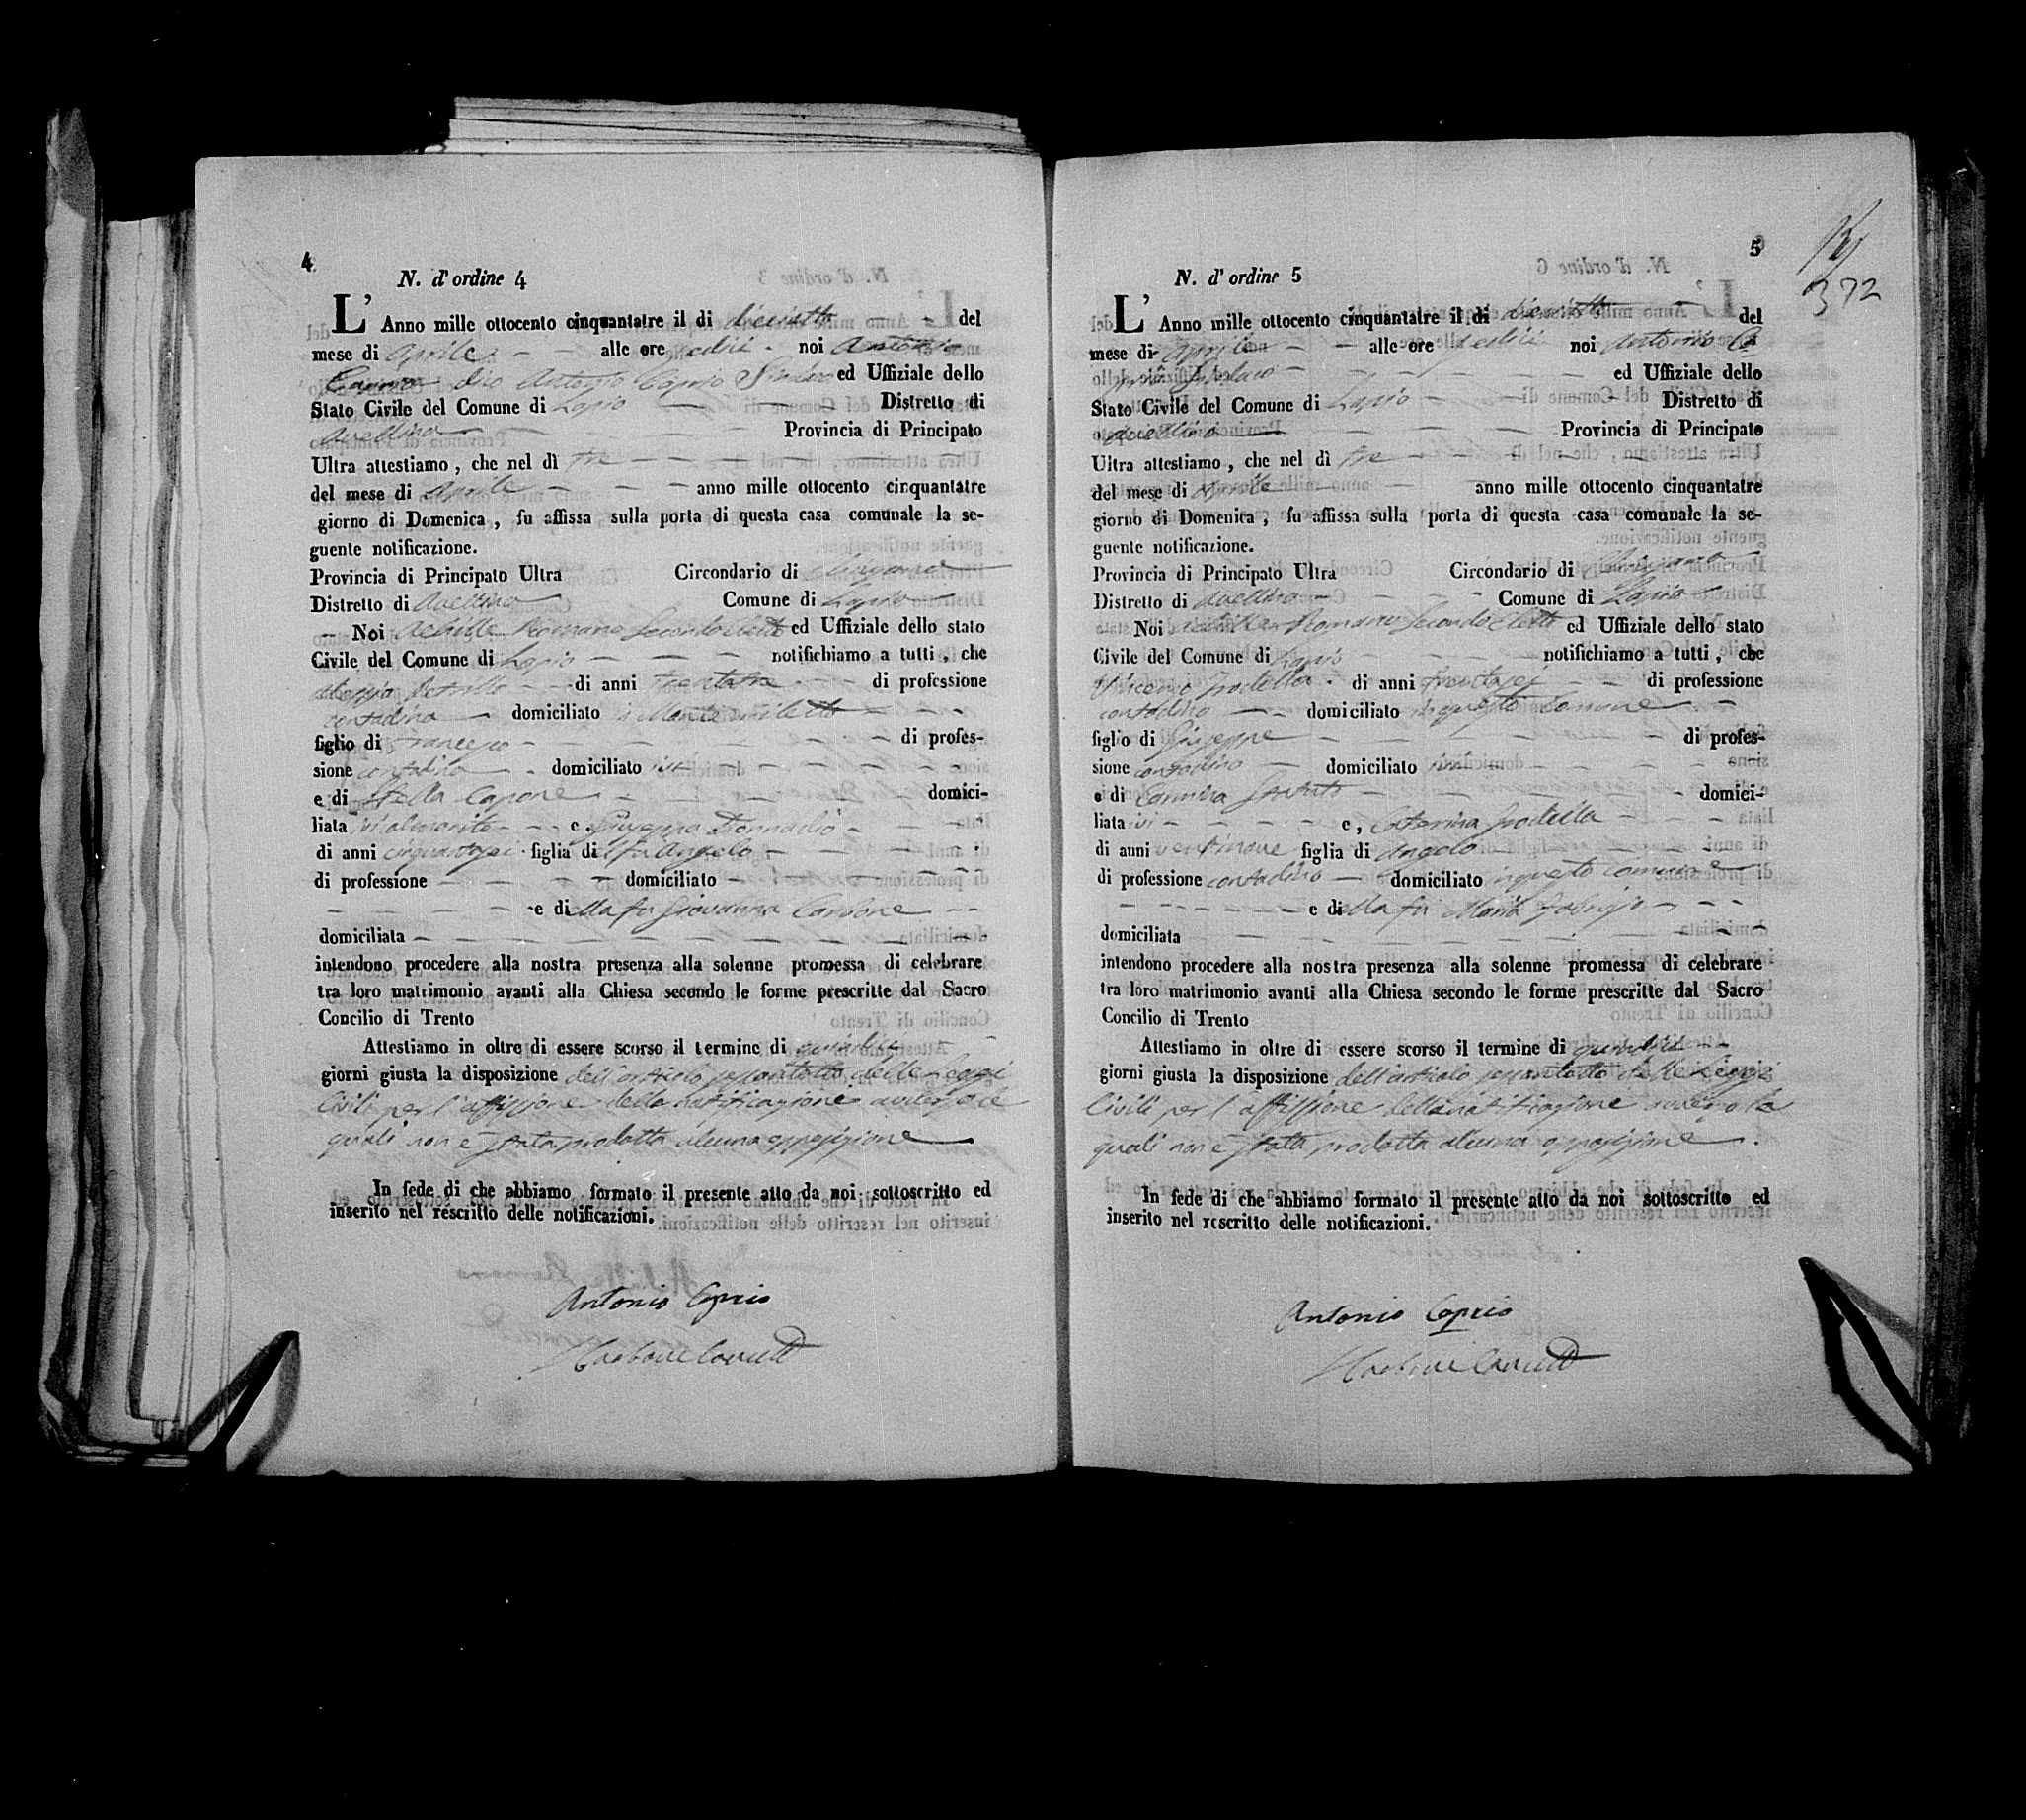 4
N. d' ordine 4
L' Anno mille ottocento cinquantatre il di diciotto del
mese di Aprile alle ore sedici noi Antonio
dico Antonio Caprio Sindaco ed Uffiziale dello
Stato Civile del Comune di Lapio Distretto di
Avellino Provincia di Principato
Ultra attestiamo, che nel dì tre
del mese di Aprile anno mille ottocento cinquantatre
giorno di Domenica, fu affissa sulla porta di questa casa comunale la se-
guente notificazione.
Provincia di Principato Ultra Circondario di
Distretto di Avellino Comune di Lapio
Noi Achille Romano Secondo Eletto ed Uffiziale dello stato
Civile del Comune di Lapio notifichiamo a tutti, che
di anni trentatre di professione
contadino domiciliato in Montemiletto
figlio di Francesco di profes-
sione contadino domiciliato ivi
e di Stella Capone domici-
liata ivi e, Giuseppa
di anni cinquantasei figlia del fu Angelo
di professione domiciliato
e della fu Giovanna Carbone
domiciliata
intendono procedere alla nostra presenza alla solenne promessa di celebrare
tra loro matrimonio avanti alla Chiesa secondo le forme prescritte dal Sacro
Concilio di Trento
Attestiamo in oltre di essere scorso il termine di quindici
giorni giusta la disposizione dell'articolo sessantotto delle Leggi
Civili per l'affissione della notificazione avverso le
quali non è stata prodotta alcuna opposizione
In fede di che abbiamo formato il presente atto da noi sottoscritto ed
inserito nel rescritto delle notificazioni.
Antonio Caprio
5
372
N. d' ordine 5
L' Anno mille ottocento cinquantatre il di diciotto del
mese di Aprile alle ore sedici noi Antonio Ca
prio Sindaco ed Uffiziale dello
Stato Civile del Comune di Lapio Distretto di
Avellino Provincia di Principato
Ultra attestiamo, che nel dì tre
del mese di Aprile anno mille ottocento cinquantatre
giorno di Domenica, fu affissa sulla porta di questa casa comunale la se-
guente notificazione.
Provincia di Principato Ultra Circondario di
Distretto di Avellino Comune di Lapio
Noi Achille Romano Secondo Eletto ed Uffiziale dello stato
Civile del Comune di Lapio notifichiamo a tutti, che
Vincenzo di anni trentasei di professione
contadino domiciliato in questo Comune
figlio di Giuseppe di profes-
sione contadino domiciliato ivi
e di domici-
liata ivi e, Caterina
di anni ventinove figlia di Angelo
di professione contadino domiciliato in questo comune
e della fu Maria
domiciliata
intendono procedere alla nostra presenza alla solenne promessa di celebrare
tra loro matrimonio avanti alla Chiesa secondo le forme prescritte dal Sacro
Concilio di Trento
Attestiamo in oltre di essere scorso il termine di quindici
giorni giusta la disposizione dell'articolo sessantotto delle Leggi
Civili per l'affissione della notificazione avverso la
quali non è stata prodotta alcuna opposizione.
In fede di che abbiamo formato il presente atto da noi sottoscritto ed
inserito nel rescritto delle notificazioni.
Antonio Caprio